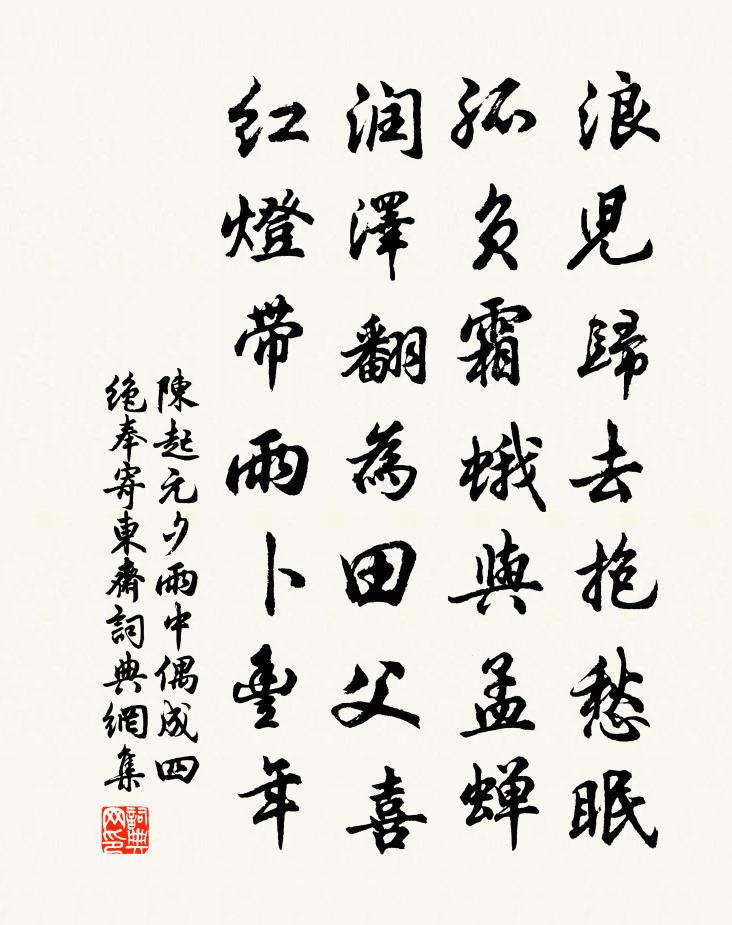 浪児歸去抱愁眠
孤負霜蛾與孟蝉
润澤翻為田父喜
红燈帶雨卜豊年
陳起元夕雨中偶成四
絶奉寄東齋詞典網集
詞典网印